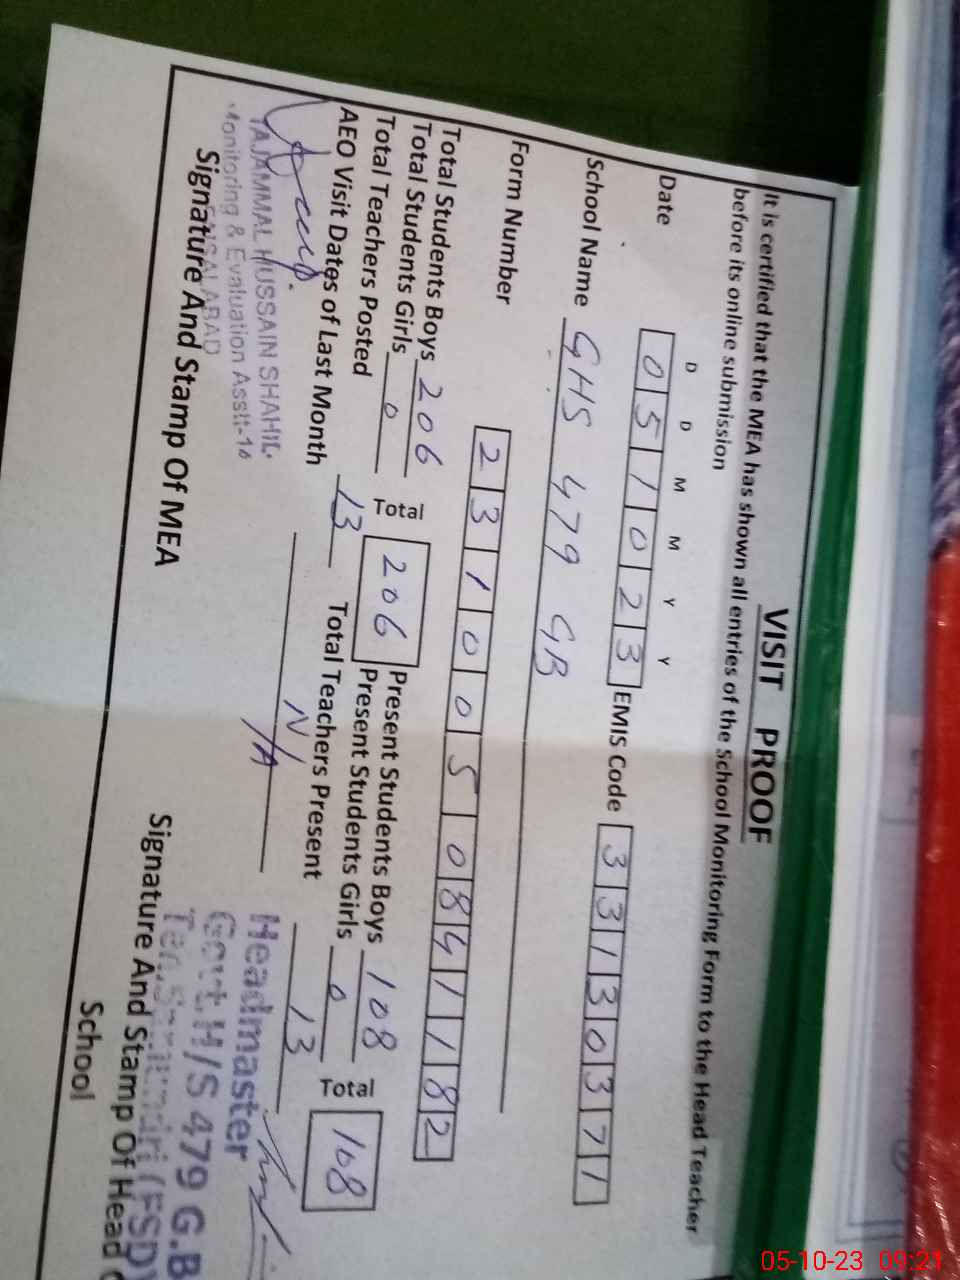 VISIT PROOF
It is certified that the MEA has shown all entries of the School Monitoring Form to the Head Teacher
before its online submission
D D M M Y Y
Date 051023 EMIS Code 33130371
School Name GHS 479 GB
Form Number 2310050841182
Total Students Boys 206 Total 206 Present Students Boys 108 Total 108
Total Students Girls 0 Present Students Girls 0
Total Teachers Posted 13 Total Teachers Present 13
AEO Visit Dates of Last Month N/A
TAJAMMAL HUSSAIN SHAHI
Monitoring & Evaluation Asstt-16
FAISALABAD
Signature And Stamp Of MEA
Headmaster
Govt. H/S 479 G.B
(FSD)
Signature And Stamp Of Head
School
05-10-23 09:21